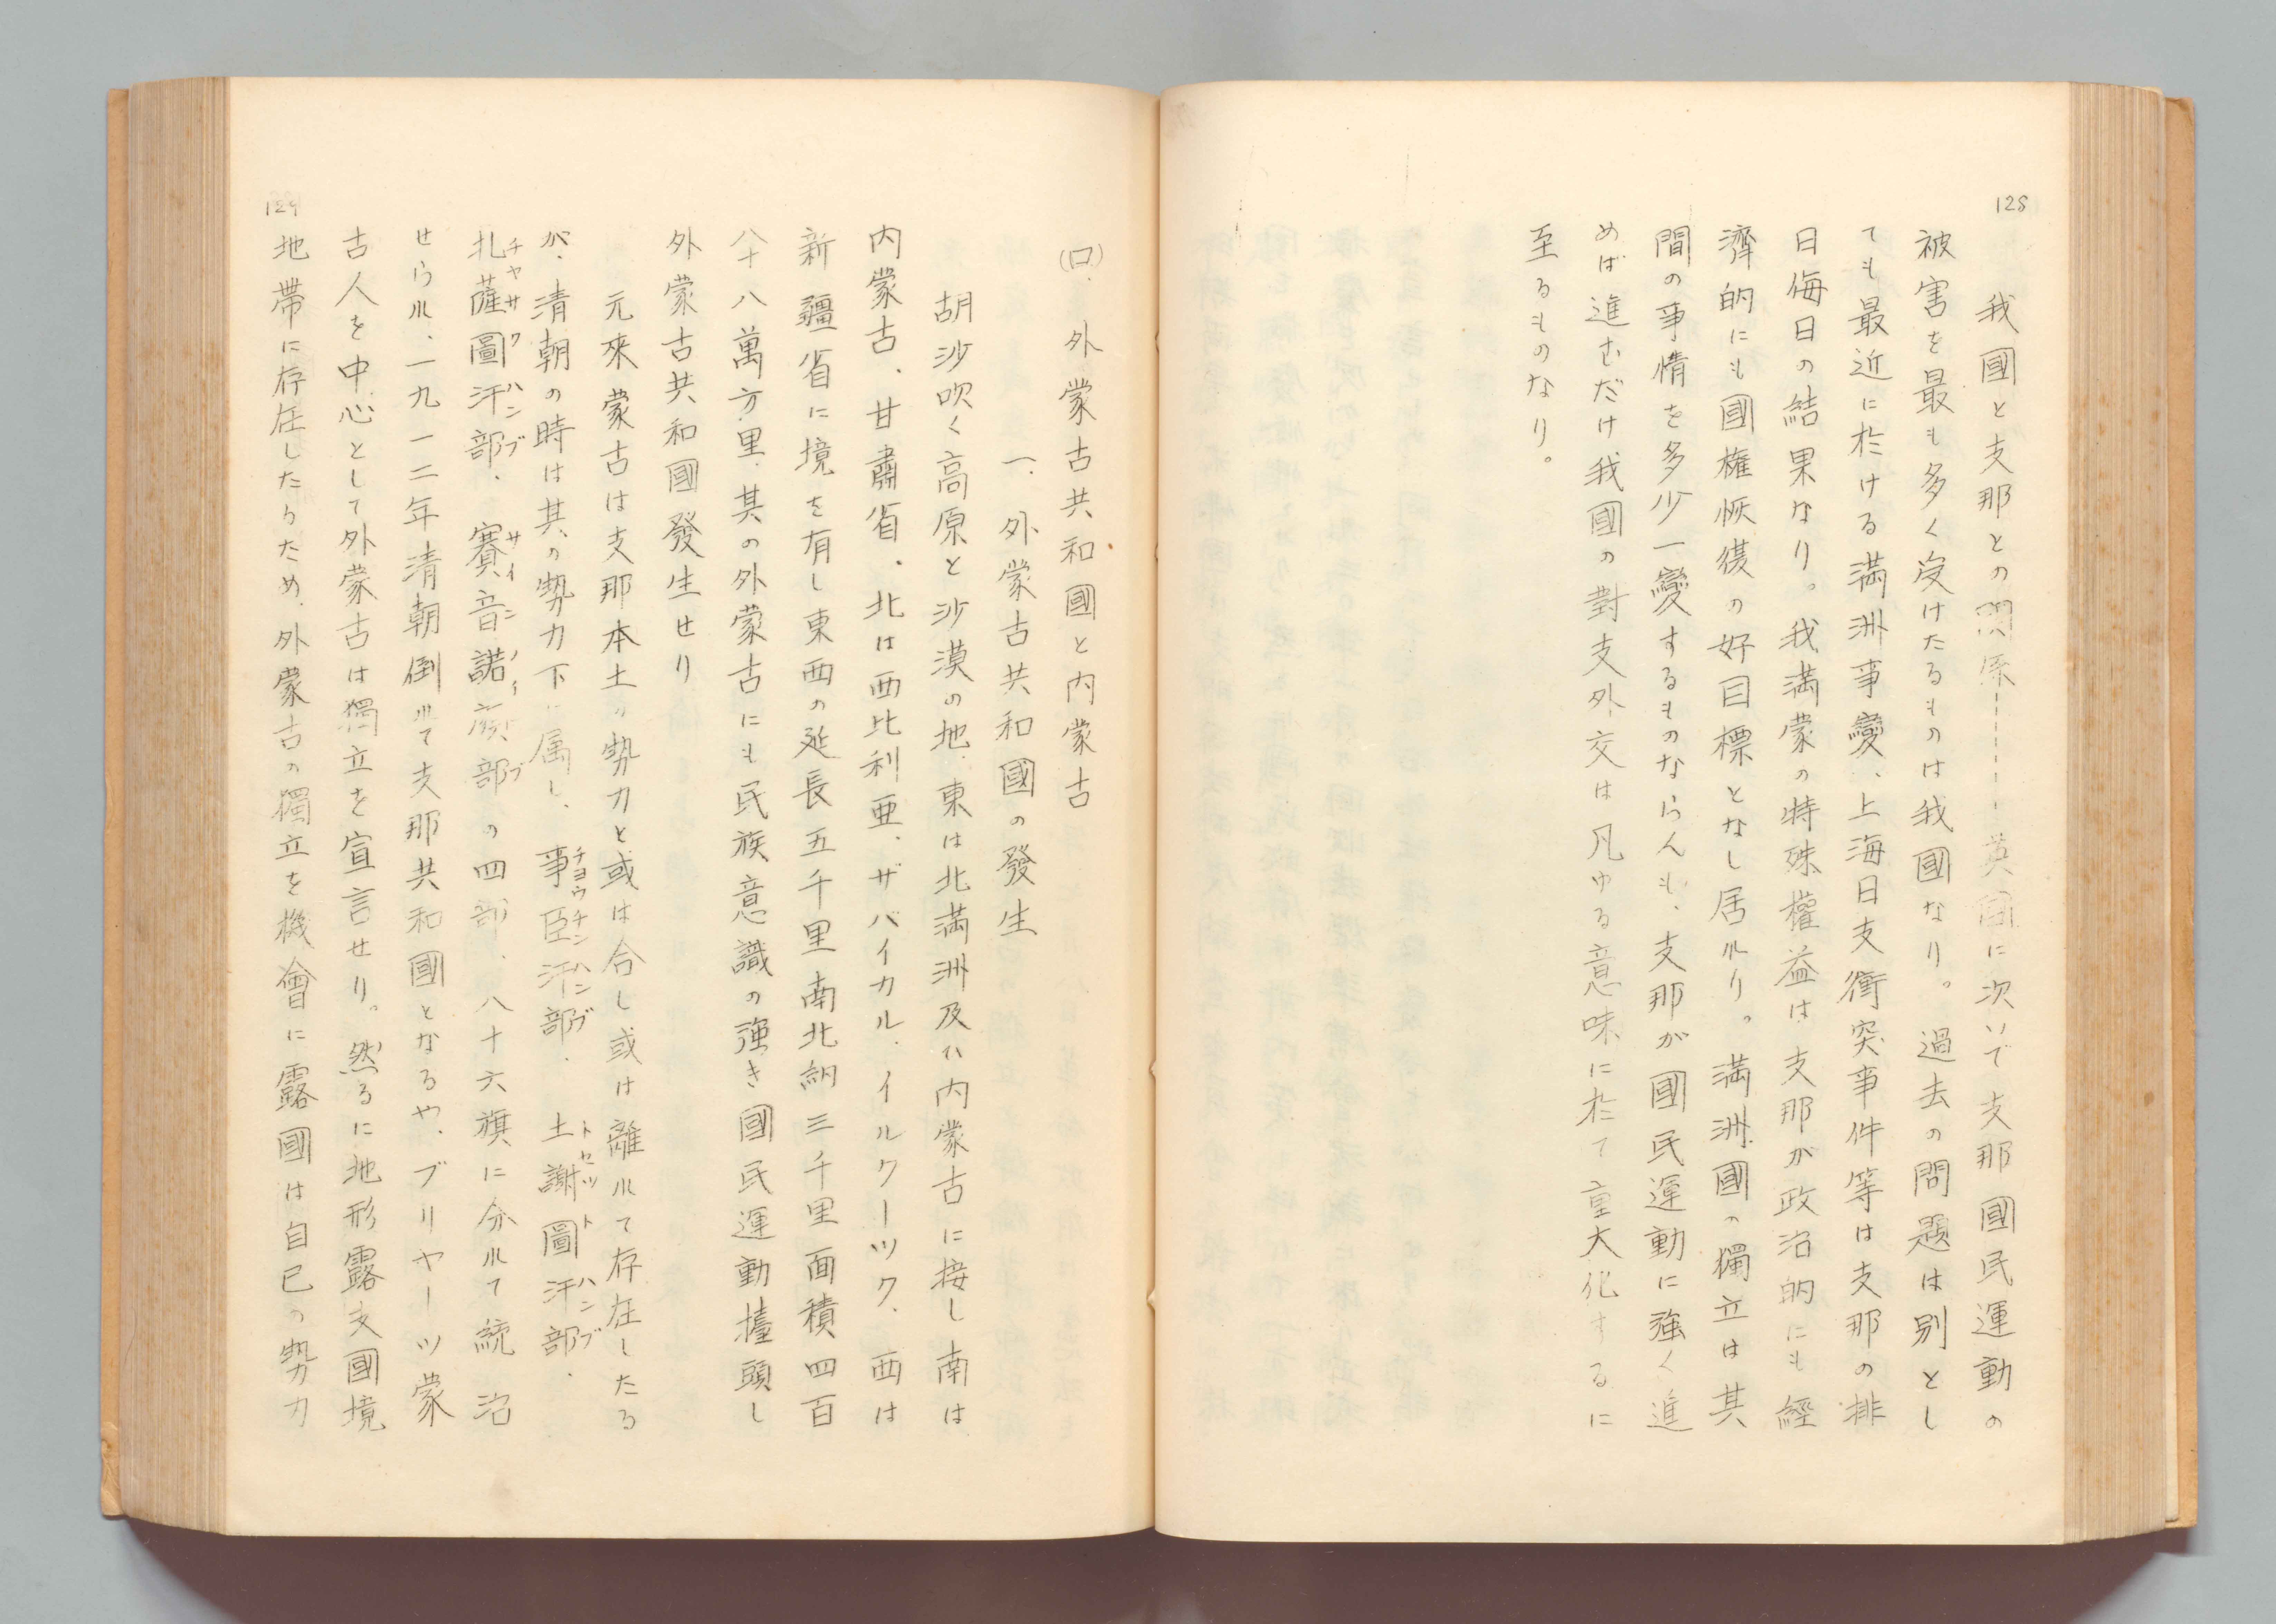 128
我國と支那との関係------英國に次いで支那國民運動の
被害を最も多く受けたるものは我國なり。過去の問題は別とし
ても最近に於ける満洲事變、上海日支衝突事件等は支那の排
日侮日の結果なり。我満蒙の特殊權益は支那が政治的にも經
濟的にも國権恢復の好目標となし居れり。満洲國の獨立は其
間の事情を多少一變するものならんも、支那が國民運動に強く進
めば進むだけ我國の對支外交は凡ゆる意味に於て重大化するに
至るものなり。
(口)、外蒙古共和國と内蒙古
一、外蒙古共和國の發生
胡沙吹く高原と沙漠の地、東は北満洲及ハ内蒙古に接し南は
内蒙古、甘肅省、北は西比利亜、ザバイカル、イルクーツク、西は
新疆省に境を有し東西の延長五千里南北納三千里面積四百
八十八萬方里、其の外蒙古にも民族意識の強き國民運動擡頭し
外蒙古共和國發生せり
元來蒙古は支那本土の勢力と或は合し或は離れて存在したる
が、清朝の時は其の勢力下に属し、事臣汗部、土謝圖汗部、
チヨウチンハンブ トセツトハンブ
札薩圖汗部、賽音諾顔部の四部、八十六旗に分れて統治
チヤサクハンブ サインノイブ
せられ、一九一二年清朝倒れて支那共和國となるや、ブリヤーツ蒙
古人を中心として外蒙古は獨立を宣言せり。然るに地形露支國境
地帯に存在したりため、外蒙古の獨立を機會に露國は自己の勢力
129